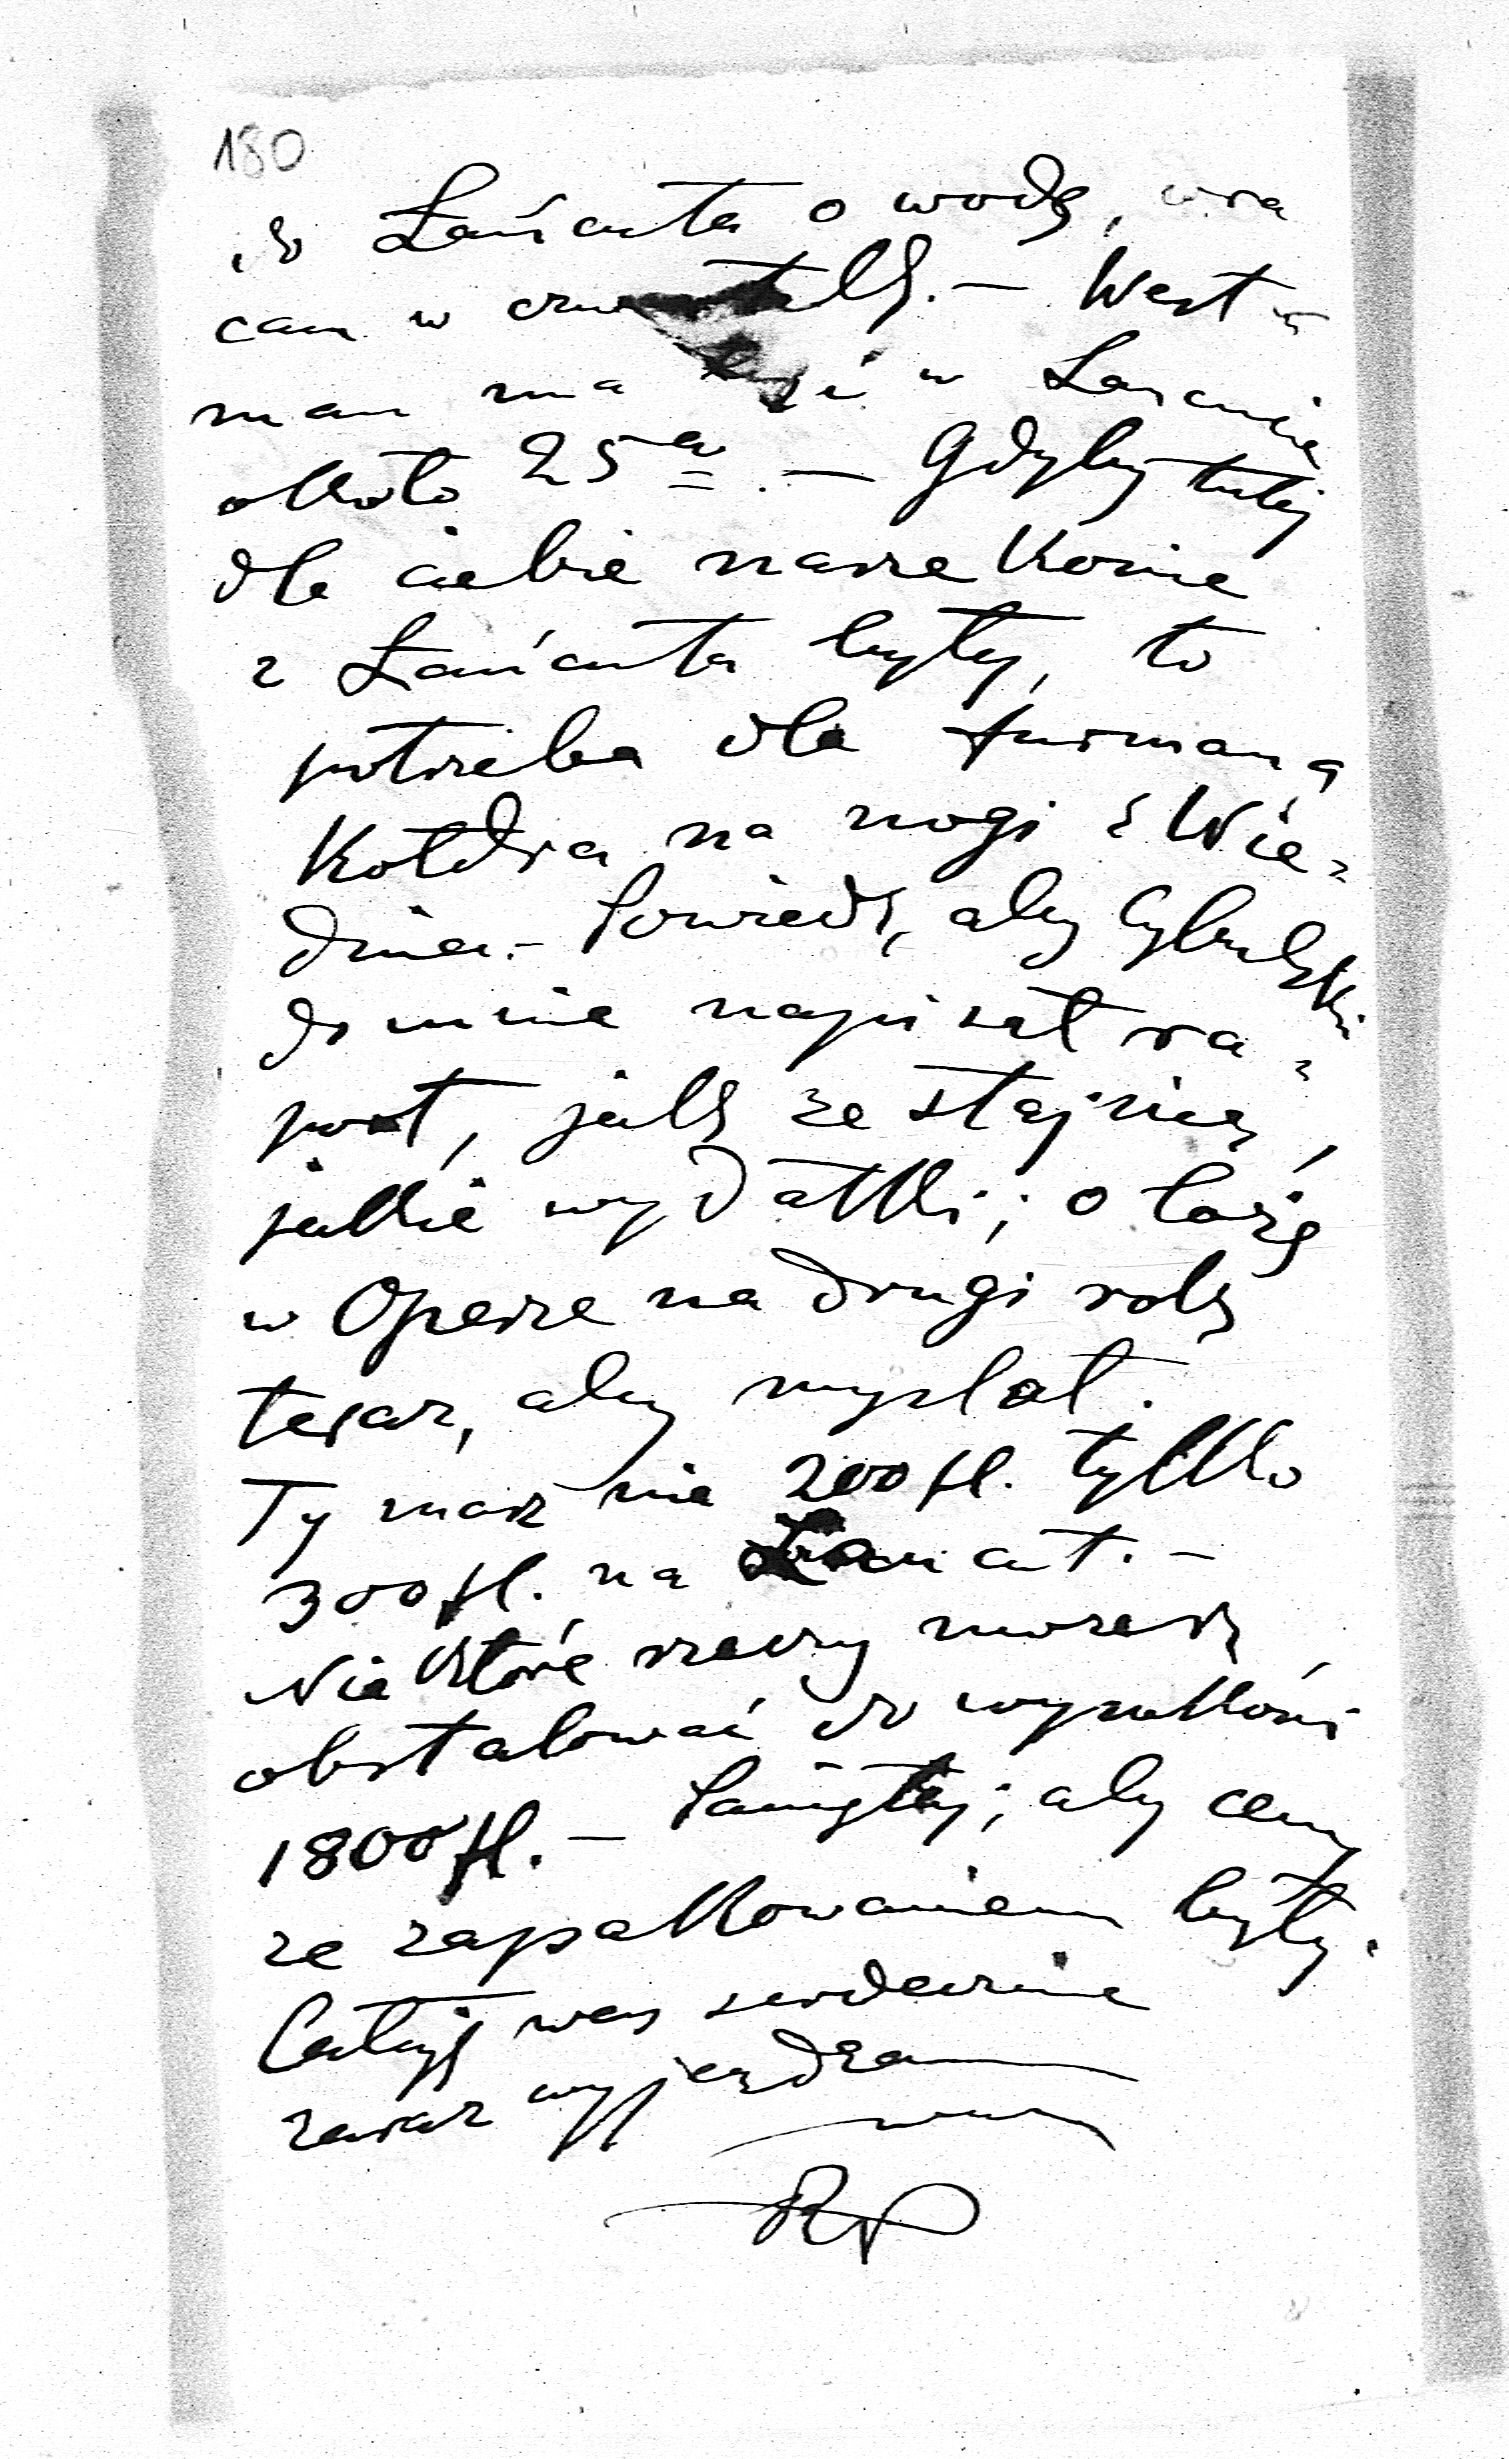 180
do Łańcuta o wodę, wra
cam w czwartek. – West=
man ma być w Łańcucie
około 25go. – Gdyby tutej
dla ciebie nasze konie
z Łańcuta były, to
potrzeba dla furmana
Kołdra na nogi z Wie=
dnia. – Powiedz, aby Cybulski
do mnie napisał ra=
port, jak ze stajnią,
jakie wydatki; o lożę
w Operze na drugi rok
teraz, aby myslał.
Ty masz nie 200 fl. tylko
300 fl. na Łańcut. –
Niektóre rzeczy możesz
obstalować do wysokości
1800 fl. – Pamiętaj, aby ceny
ze zapakowaniem były.
Całuję was serdecznie
zaraz wyjeżdzam
RP